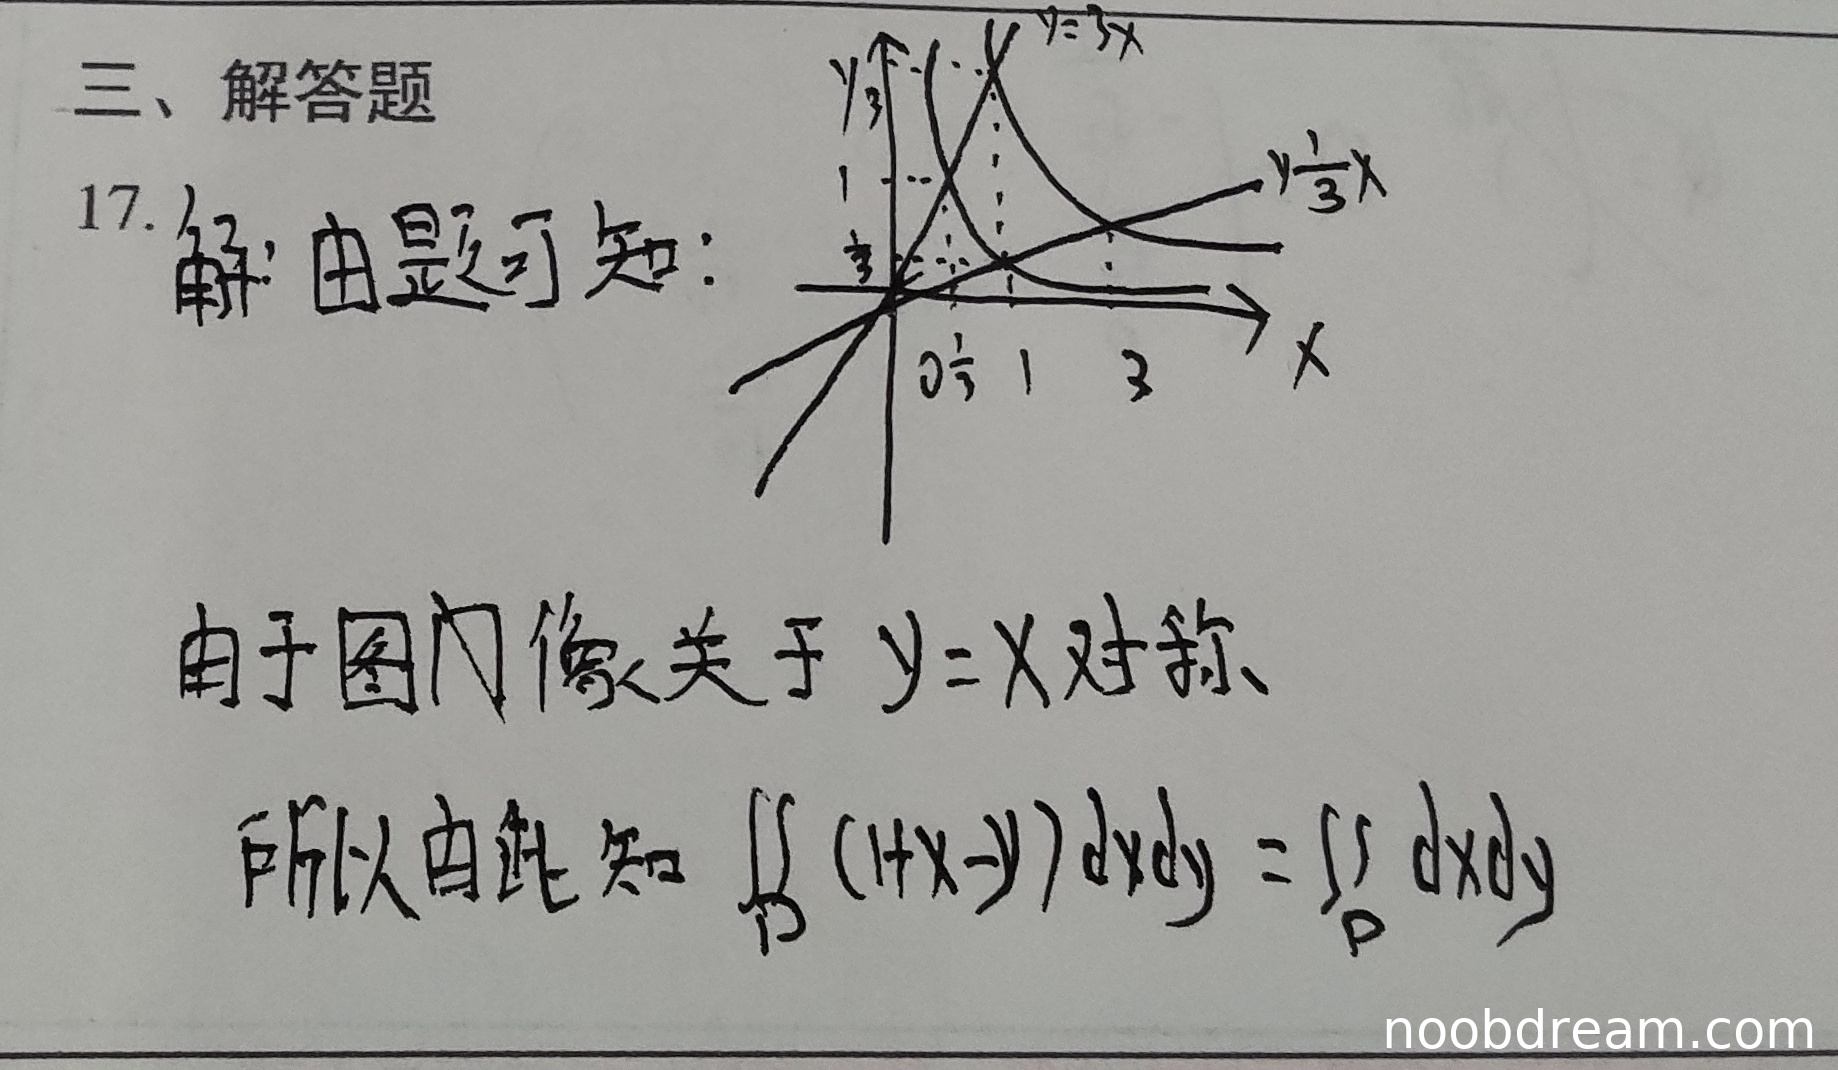 三、解答题
y=3x
y
3
1
1/3
y=1/3x
17. 解:由题可知:
0 1/3 1 3 x
由于图门像关于 y=x对称、
所以由此知 ∬D (1+x-y)dxdy = ∬D dxdy
noobdream.com